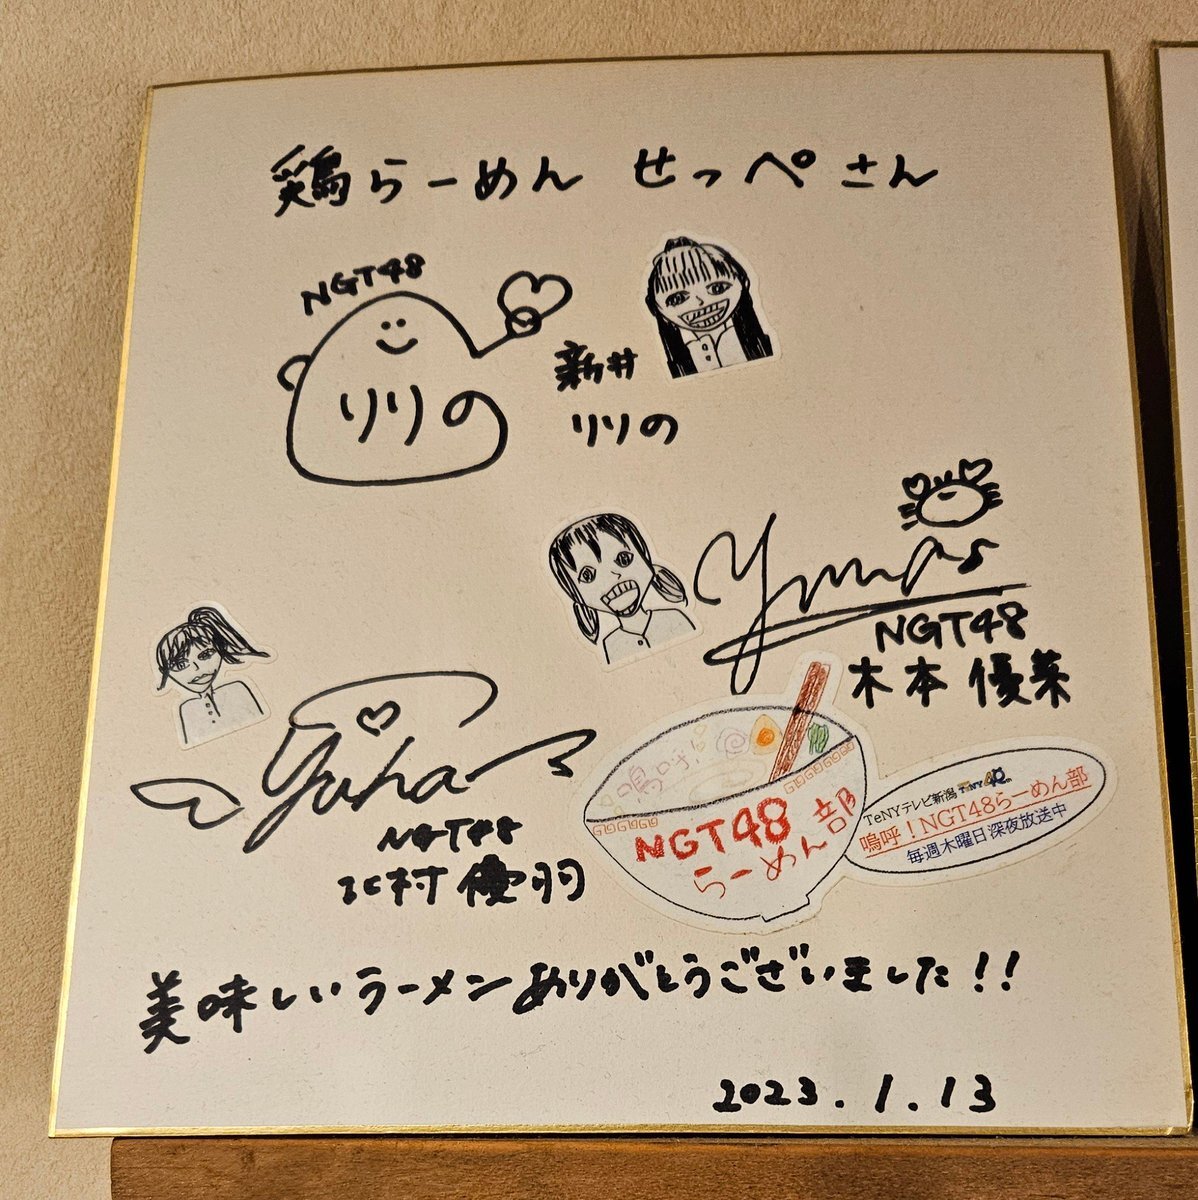 鶏らーめん せっぺさん
NGT48
りりの
新井
りりの
NGT48
木本 優菜
yuha
NGT48
北村 優羽
嗚呼!
NGT48
らーめん部
TeNYテレビ新潟
嗚呼!NGT48らーめん部
毎週木曜日深夜放送中
美味しいラーメンありがとうございました!!
2023.1.13